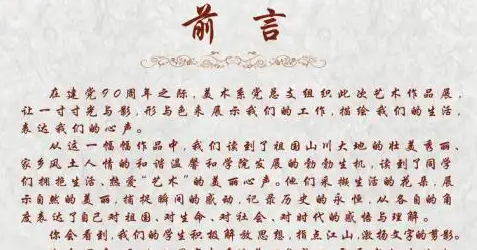 前 言
在建党90周年之际,美术系党总支组织此次艺术作品展,
让一寸寸光与影,形与色来展示我们的工作,描绘我们的生活,
表达我们的心声。
从这一幅幅作品中,我们读到了祖国山川大地的壮美秀丽、
家乡风土人情的和谐温馨和学院发展的勃勃生机,读到了同学
们拥抱生活、热爱“艺术”的美丽心声。他们采撷生活的花朵,展
示自然的美丽,捕捉瞬间的感动,记录历史的永恒,从各自的角
度表达了自己对祖国、对生命、对社会、对时代的感悟与理解。
你会看到,我们的学生积极解放思想,指点江山,激扬文字的剪影。